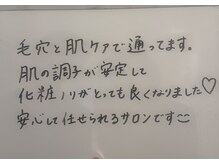 毛穴と肌ケアで通ってます。
肌の調子が安定して
化粧ノリがとっても良くなりました♡
安心して任せられるサロンです